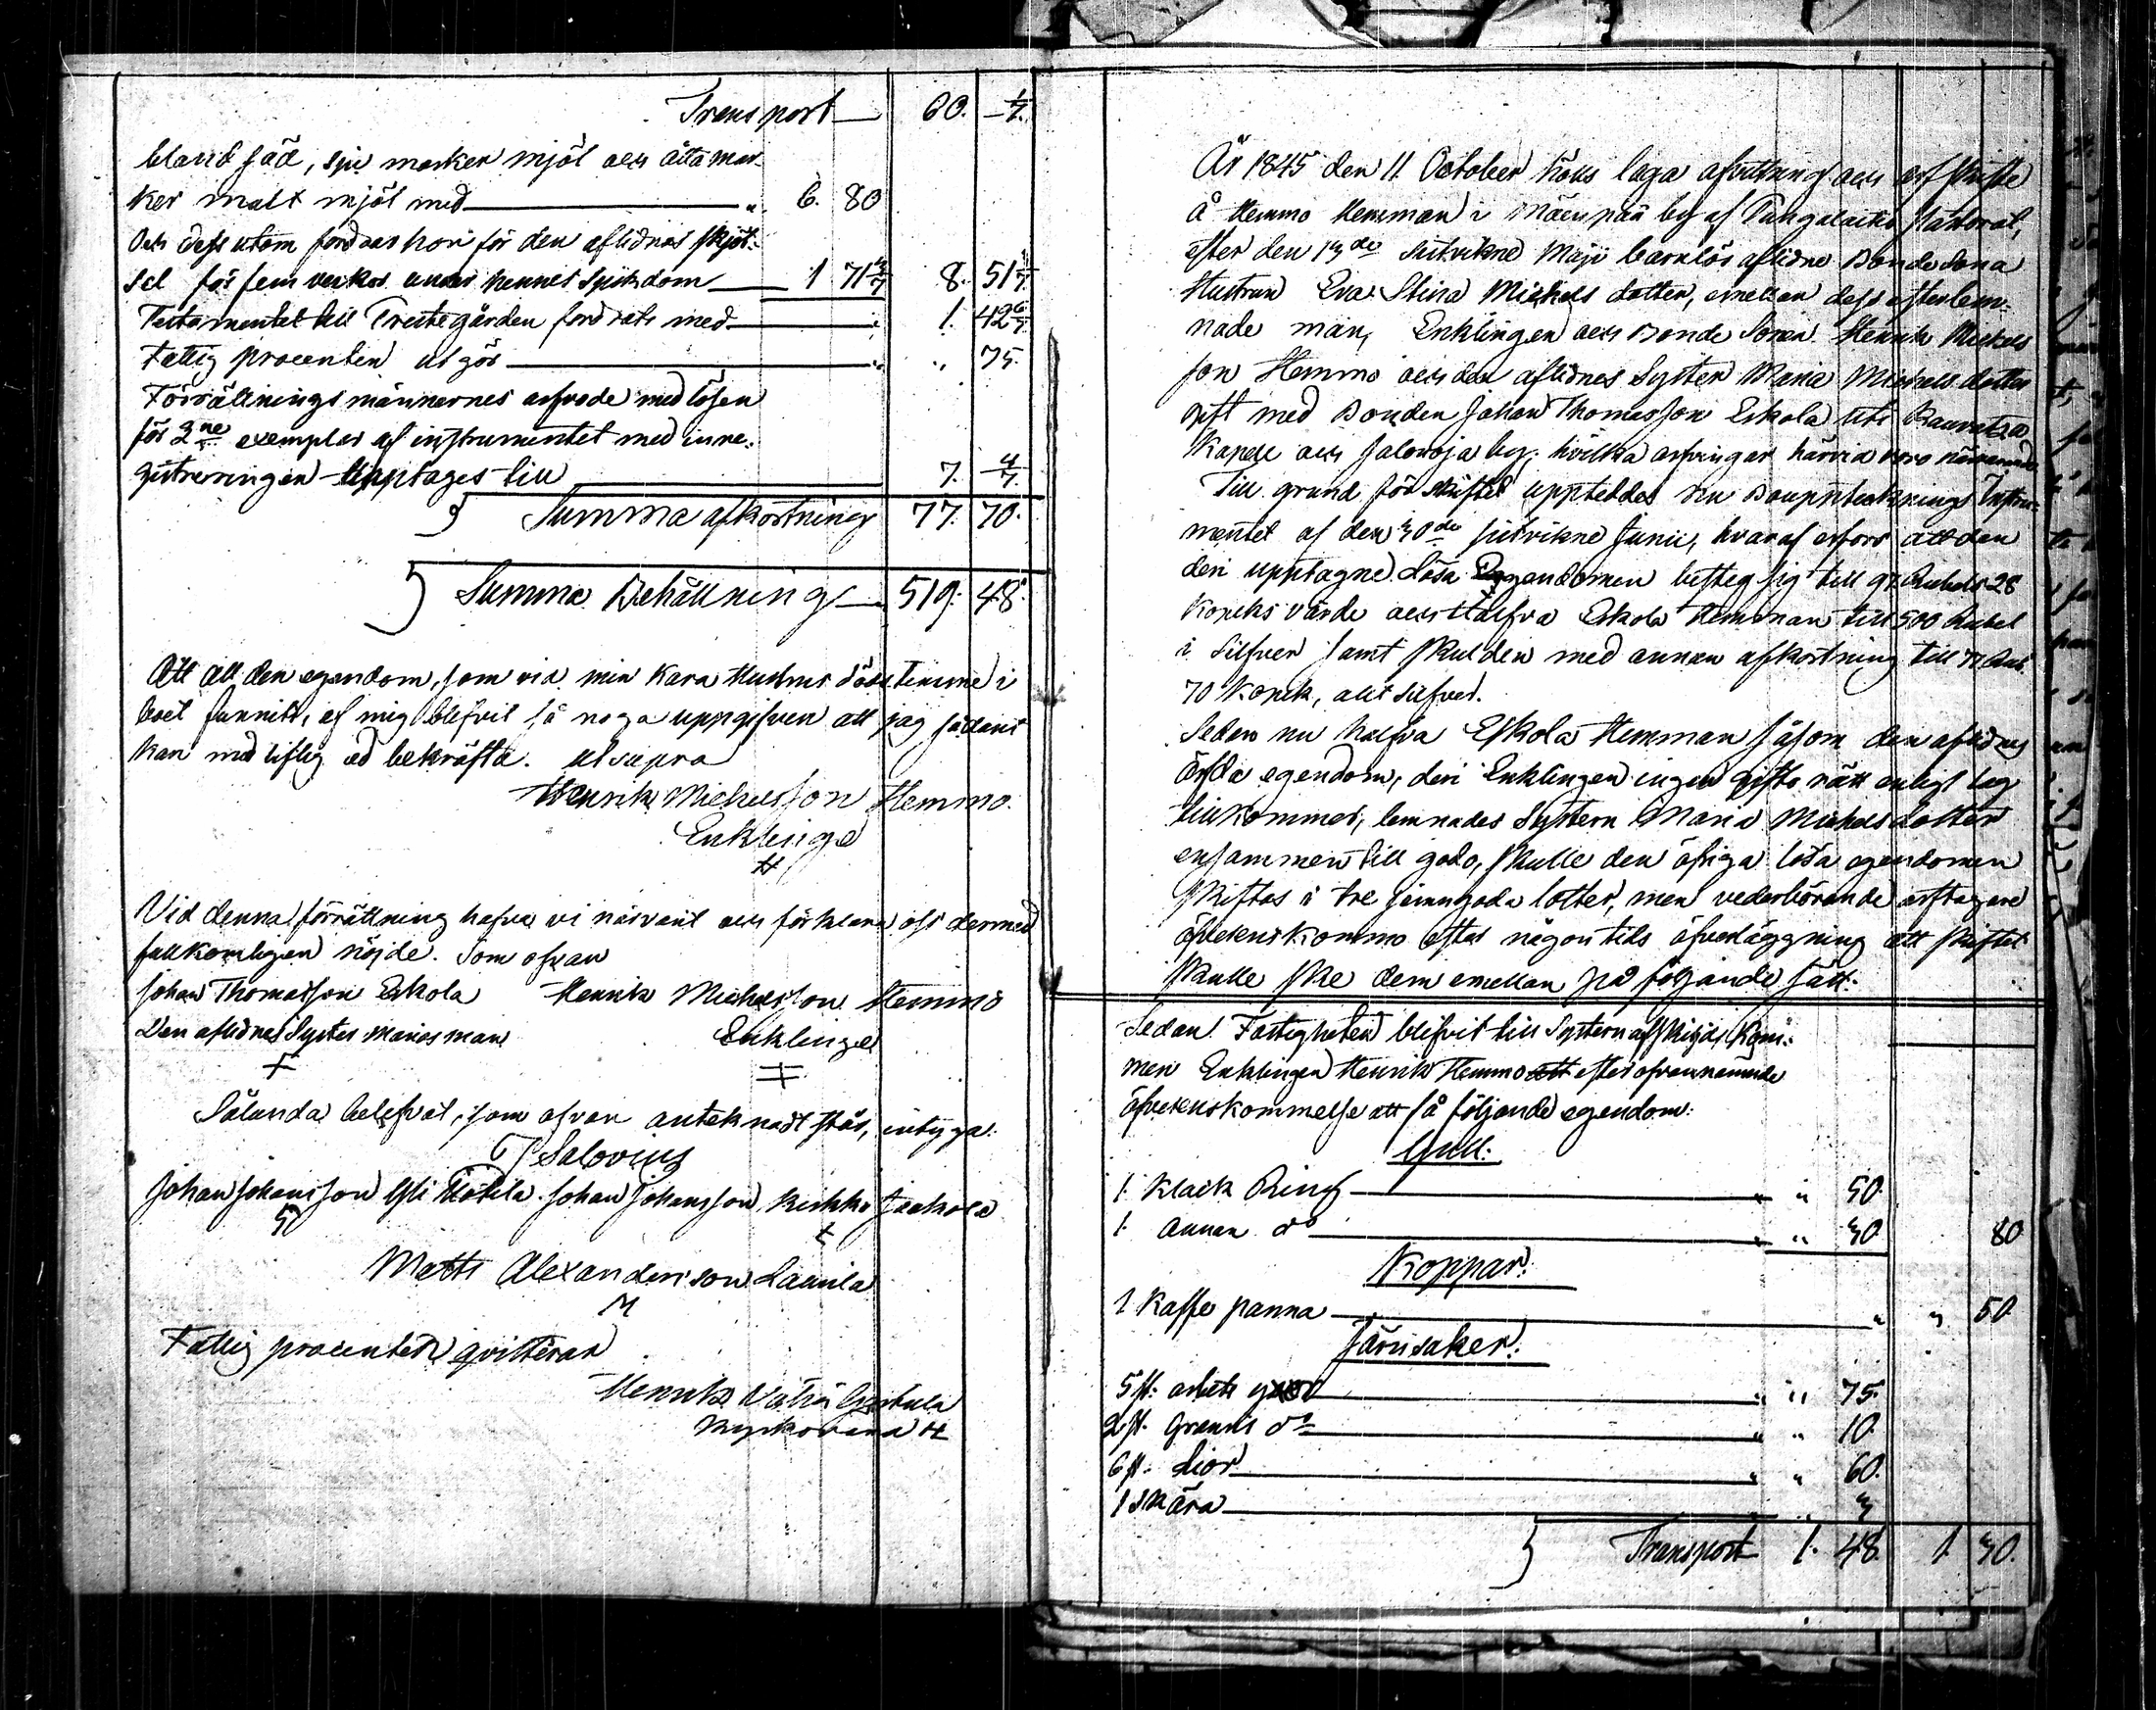 Transport — 60. 1/7.
bland säd, sju marker mjöl och åtta mar-
ker malt mjöl med — „ 6. 80
Och dess utom fordrar hon för den aflidnas skjöt-
sel för fem veckor under hennes Sjukdom — 1 71 3/7 8. 51 3/7
Testamentet till Trustegården fordrats med — „ 1. 42 6/7
Fattig procenten utgör — „ „ 75.
Förrättningsmännernes arfvode med lösen
för 2ne exemplar af instrumentet med inre-
gistreringen upptages till — 7. 4/7
Summa afkortning 77. 70.
Summa Behållning — 519. 48.
Att all den egendom, som vid min Kära Hustrus dödstimme i
boet funnits, af mig blifvit så noga uppgifven att jag sådant
kan med liflig ed bekräfta. ut supra
Henrik Michelsson Hemmo.
Enkling
Vid denna förrättning hafva vi närvarit och förklara oss dermed
fullkomligen nöjde. Som ofvan
Johan Thomasson Eskola Henrik Michelsson Hemmo
Den aflidnas Syster Marias man Enkling
Sålunda belefvat, som ofvan antecknadt står, intyga:
Salovius
Johan Johansson Johan Johansson Jaakola
Matts Alexandersson Laurila
M
Fattig procenten qvitterar
Henrik
Kyrkovärd H
År 1845 den 11 October hölls laga afvittring och arfskifte
å Hemmo Hemman i Mäenpää by af Kangalaitio Pastorat,
efter den 13de sistvikne Maji barnlös aflidne Bonde Sona
Hustrun Eva Stina Michels dotter, emellan dess efterlem-
nade man, Enklingen och Bonde Sonen Henrik Michels
son Hemmo och den aflidnes Syster Maria Michels dotter
gift med Bonden Johan Thomasson Eskola uti Kauvatsa
Kapell och Jalonoja by; hvilka arfvingar härvid voro närvarande
Till grund för skiftet uppteddes nu Bouppteknings Instru-
mentet af den 30de sistvikne Junii, hvaraf erfors att den
deri upptagne Lösa Egendomen besteg sig till 97 Rubels 28
Kopeks värde och Halfva Eskola Hemman till 500 Rubel
i Silfver samt skulden med annan afkortning till 77 Rub.
70 Kopek, allt Silfver.
Sedan nu halfva Eskola Hemman såsom den aflidnes
ärfda egendom, deri Enklingen ingen gifto rätt enligt lag
tillkommer, lemnades Systern Maria Michelsdotter
ensammen till godo, skulle den öfriga lösa egendomen
skiftas i tre jämngoda lotter, men vederbörande arftagare
öfverenskommo efter någon tids öfverläggning att skiftet
skulle ske dem emellan på följande sätt:
Sedan Fastigheten blifvit till Systern afskiljd, kom-
mer Enklingen Henrik Hemmo att efter ofvannämnde
öfverenskommelse att få följande egendom:
Gull:
1. Klack Ring — „ „ 50.
1. annan do — „ „ 30 80
Koppar:
1 Kaffe panna — „ „ 50
Järnsaker:
5 st. arbets yxor — „ „ 75.
2 st. do — „ „ 10.
6 st. Liar — „ „ 60.
1 Skära — „ „ 3
Transport 1. 48. 1. 30.